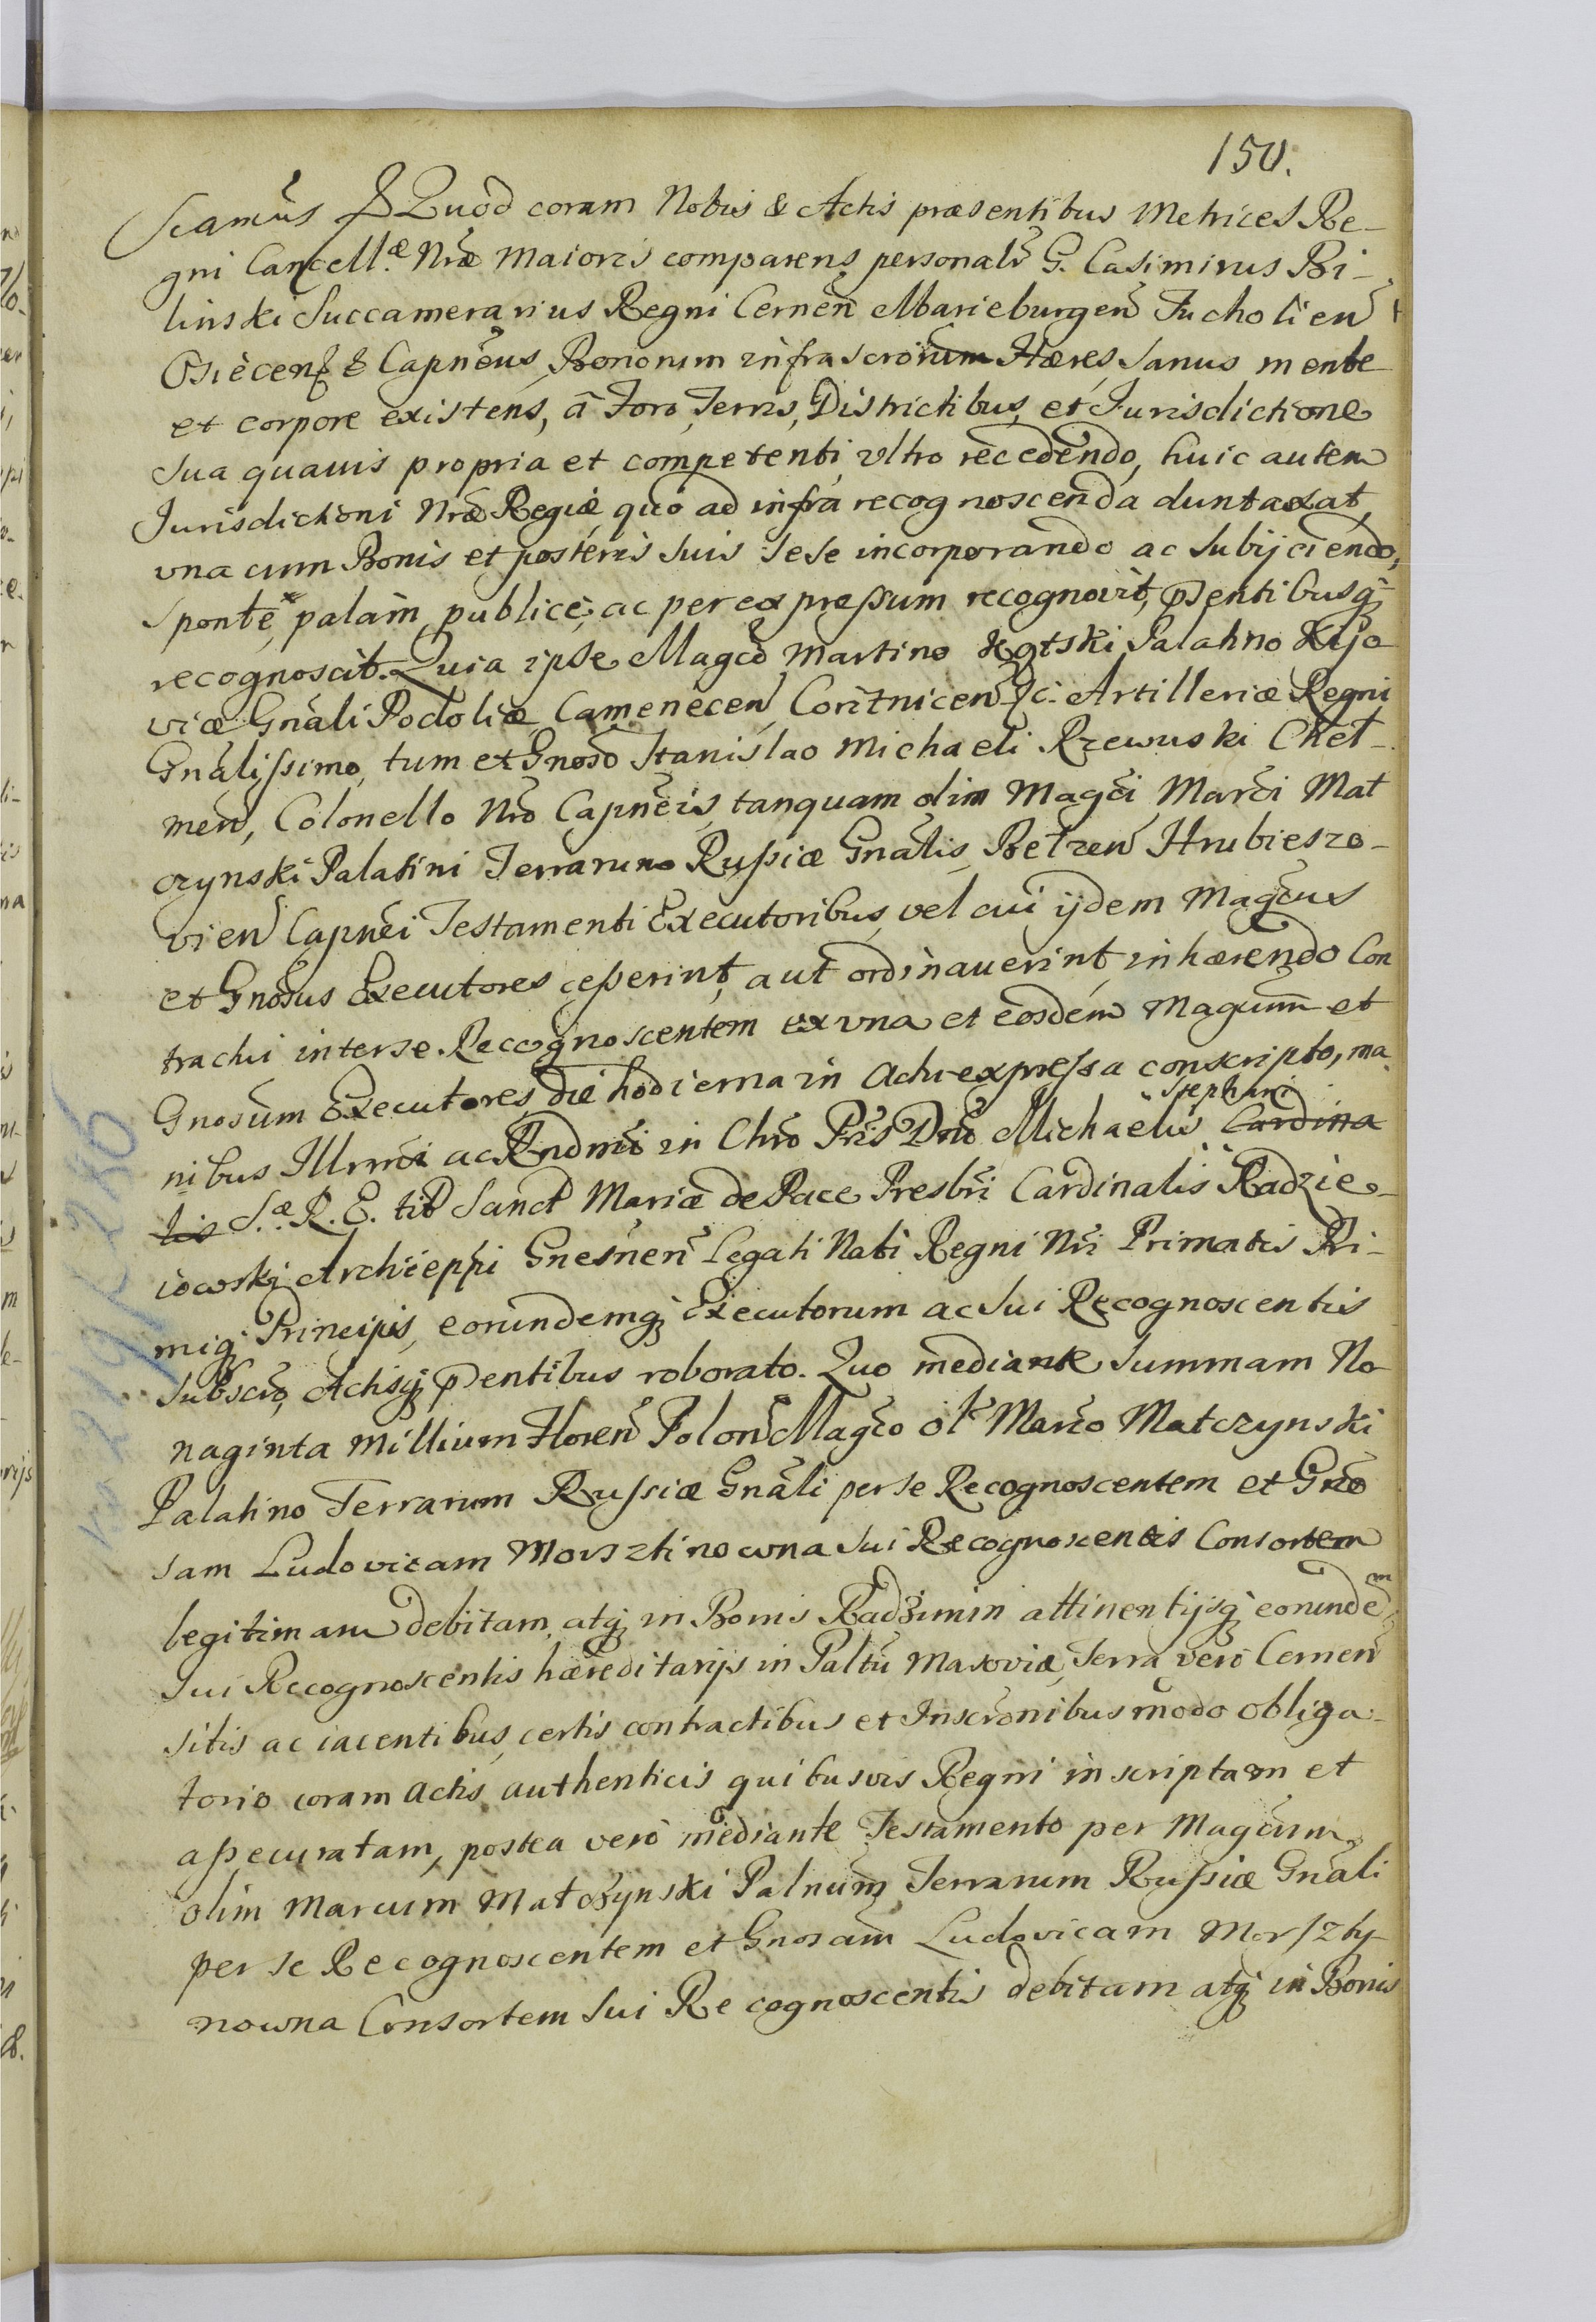 150.
scamus Quod coram Nobis & Actis præsentibus Metrices Re-
gni Cancell.æ Nrã Maioris comparens personalr G. Casimirus Bi-
linski Succamerarius Regni Cernen Marieburgen Tucholien
Osiecens & Capneus, Bonorum infrascrorum Hæres, sanus mente
et corpore existens, à Foro, Terris, Districtibus, et Jurisdictione
sua quauis propria et competenti vltro recedendo, huic autem
Jurisdictioni Nræ Regiæ quo ad infra recognoscenda duntaxat,
vna cum Bonis et posteris suis sese incorporando ac subijciendo,
sponte, palàm, publicè, ac per expressum recognovit, pntibusq
recognoscit. Quia ipse Magco Martino Kątski Palatino Kijo
viæ Gnali Podoliæ, Camenecen, Coritnicen Artilleriæ Regni
Gnalissimo, tum et Gnoso Stanislao Michaeli Rzewuski Cheł-
men, Colonello Nro Capneis, tanquam olim Magci Marci Mat
czynski Palatini Terrarum Russiæ Gnalis, Bełzen Hrubieszo-
vien Capnei Testamenti Executoribus, vel cui ijdem Magcus
et Gnosus Executores cesserint, aut ordinauerint, inhærendo Con
tractui inter se Recognoscentem ex vna et eosdem Magcum et
Gnosum Executores die hodierna in Actu expressa conscripto, ma
nibus Illrmi ac Rndmi in Chro Pris Dni Michaelis Stephani Cardina
lis S.æ R. E. tit Sanct Mariæ de Pace Presbri Cardinalis Radzie-
iowski Archieppi Gnesnen Legati Nati Regni Nri Primatis Pri-
miq Principis, eorundemq Executorum ac sui Recognoscentis
subscro, Actisq pntibus roborato. Quo mediante summam No
naginta Millium Floren Polon Magco ol Marco Matczynski
Palatino Terrarum Russiæ Gnali per se Recognoscentem et Gno
sam Ludovicam Morsztinowna sui Recognoscentis Consortem
legitimam debitam, atq in Bonis Radzimin attinentijsq eorundem
sui Recognoscentis hæreditarijs in Paltu Masoviæ, Terra vero Cernen
sitis ac iacentibus, certis contractibus et Inscronibus modo obliga-
torio coram Actis authenticis quibusvis Regni inscriptam et
assecuratam, postea verò mediante Testamento per Magcum
olim Marcum Matczynski Palnum Terrarum Russiæ Gnali
per se Recognoscentem et Gnosam Ludovicam Morszty-
nowna Consortem sui Recognoscentis debitam atq in Bonis